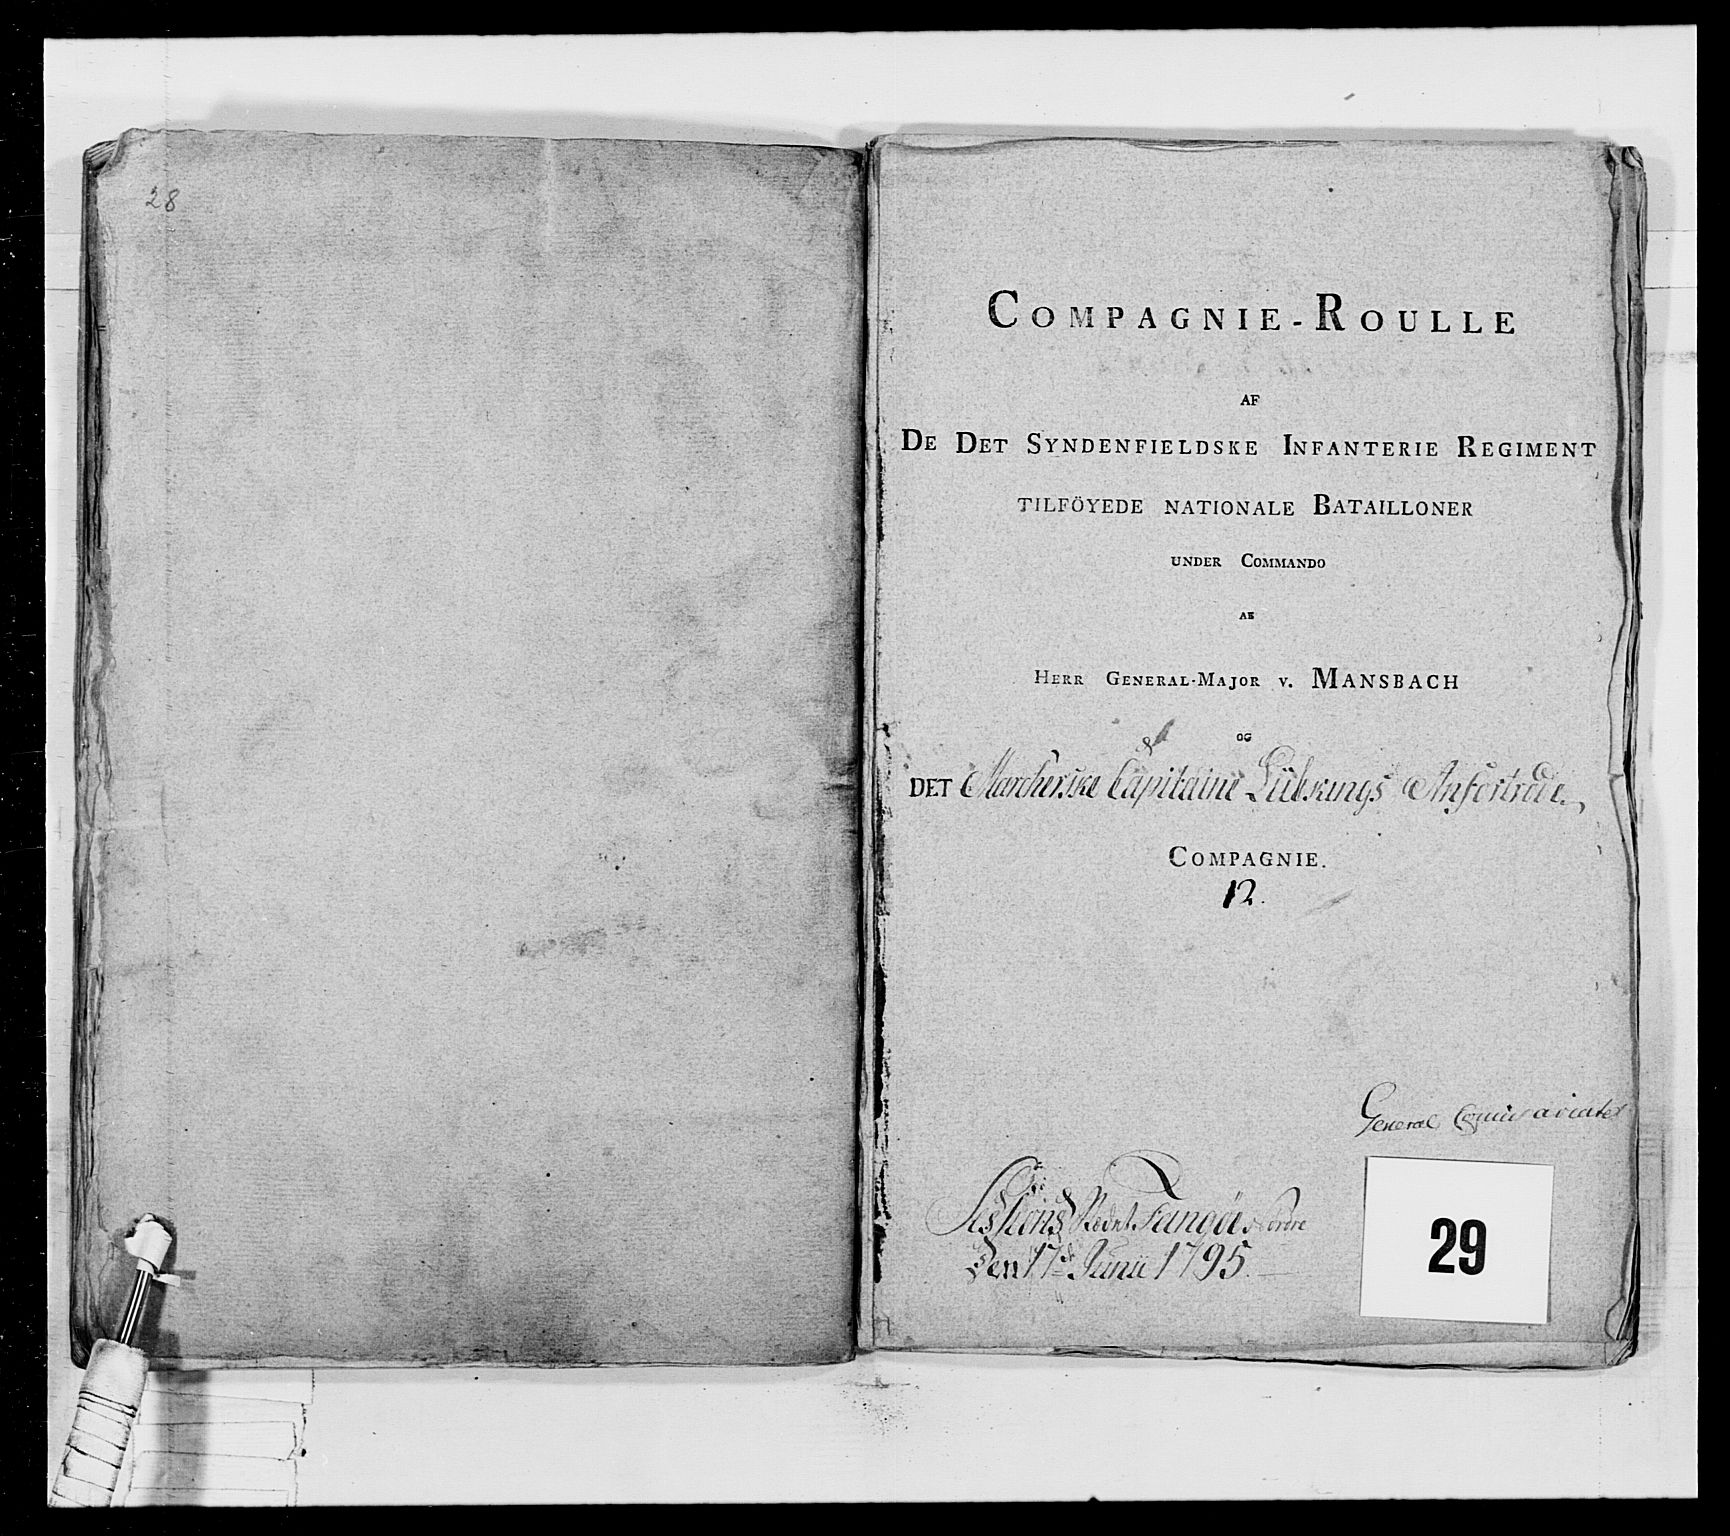 28
COMPAGNIE-ROULLE
AF
DE DET SYNDENFIELDSKE INFANTERIE REGIMENT
TILFÖYEDE NATIONALE BATAILLONER
UNDER COMMANDO
AF
HERR GENERAL-MAJOR V. MANSBACH
OG
DET Marcherske Capitaine Lübkings Anfortrode
COMPAGNIE.
12.
General
Sessions Stedet
Den 17de Junii 1795.
29